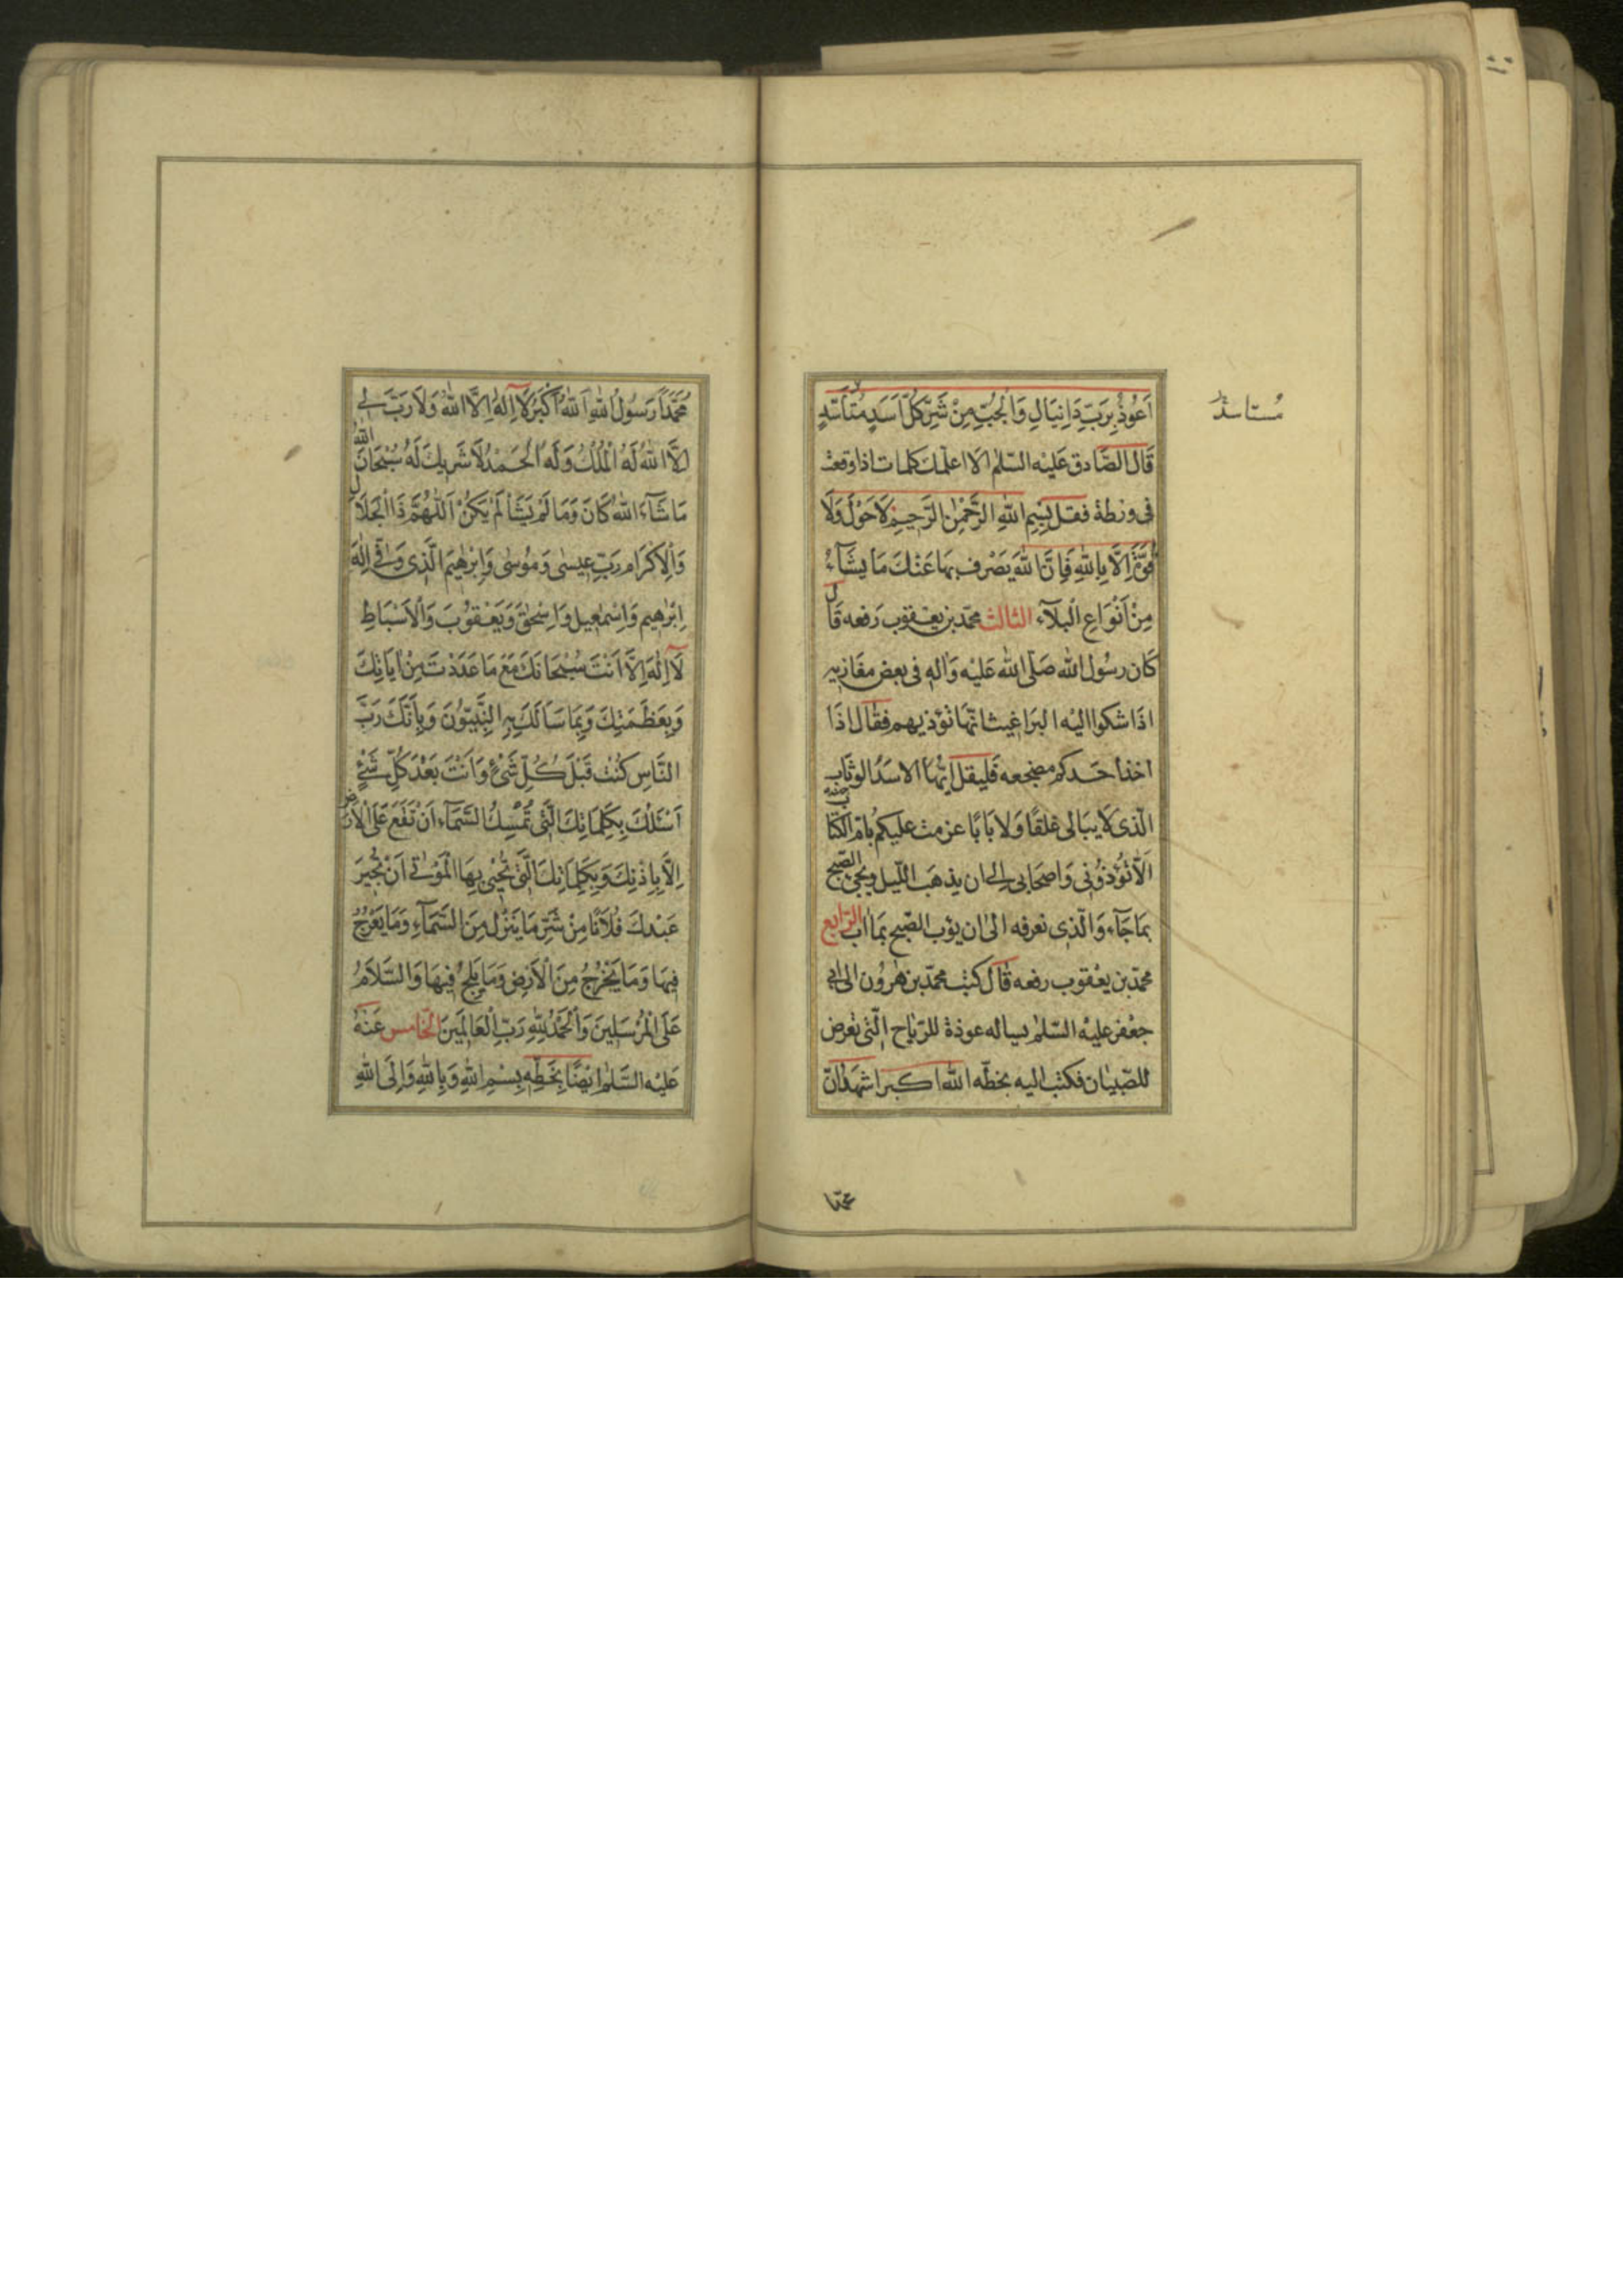 اَعُوذُ بِرَبِّ دَانِيَالَ وَالْجُبِّ مِنْ شَرِّ كُلِّ اَسَدٍ مُتَأسِّدٍ
مُستاسد
قَالَ الصَّادق عَليْه السّلم الا اعلّمك كلمات اذا وقعت
فى ورطة فقل بِسْمِ اللّٰهِ الرَّحْمٰنِ الرَّحِيمِ لَا حَوْلَ وَلَا
قُوَّةَ اِلَّا بِاللّٰهِ فَاِنَّ اللّٰهَ يَصْرِف بِهَا عَنْكَ مَا يشَآءُ
مِنْ اَنْوَاعِ الْبلَآءِ الثالث محمّد بن يعْقوب رَفعه قَال
كَان رسُول الله صَلّى الله عَليْه وَاله فى بعض مغَازيه
اذَا شكوا اليْه البرَاغيث انّهَا تؤذيهم فقَال اذَا
اخذ احَدكم مضجعه فَليقل ايّهَا الاسَدُ الوثّاب
الّذى لَا يبَالى غلقًا وَلا بَابًا عزمت عليكم بامّ الكتَاب
الَّا تؤذُونى وَاصحَابى الى ان يذهَب اللّيل ويجئ الصّبح
بمَا جَآء وَالّذى نعرفه الى ان يؤب الصّبح بمَا اب الرّابع
محمّد بن يعْقوب رفعه قَال كتب محمّد بن هٰرُون الى ابى
جعْفر عليْه السّلم يساله عوذة للرّيَاح الّتى تعْرض
للصّبيَان فكتب اليه بخطّه اللّه اكبر اشهَد انّ
مُحَمَّدًا رَسُولُ اللّٰهِ اَللّٰهُ اَكْبَرُ لَا اِلٰهَ اِلَّا اللّٰهُ وَلَا رَبَّ لِى
اِلَّا اللّٰهُ لَهُ الْمُلْكُ وَلَهُ الْحَمْدُ لَا شَرِيكَ لَهُ سُبْحَانَ اللّٰهِ
مَا شَآءَ اللّٰهُ كَانَ وَمَا لَمْ يَشَأْ لَمْ يَكُنْ اَللّٰهُمَّ ذَا الْجَلَالِ
وَالْاِكْرَامِ رَبِّ عِيسٰى وَمُوسٰى وَاِبْرٰهِيمَ الَّذِى وَفّٰى اِلٰهَ
اِبْرٰهِيمَ وَاِسْمٰعِيلَ وَاِسْحٰقَ وَيَعْقُوبَ وَالْاَسْبَاطِ
لَا اِلٰهَ اِلَّا اَنْتَ سُبْحَانَكَ مَعَ مَا عَدَدْتَ مِنْ اٰيَاتِكَ
وَبِعَظَمَتِكَ وَبِمَا سَأَلَكَ بِهِ النَّبِيُّونَ وَبِاَنَّكَ رَبُّ
النَّاسِ كُنْتَ قَبْلَ كُلِّ شَىْءٍ وَاَنْتَ بَعْدَ كُلِّ شَىْءٍ
اَسْئَلُكَ بِكَلِمَاتِكَ الَّتِى تُمْسِكُ السَّمَآءَ اَنْ تَقَعَ عَلَى الْاَرْضِ
اِلَّا بِاِذْنِكَ وَبِكَلِمَاتِكَ الَّتِى تُحْيِى بِهَا الْمَوْتٰى اَنْ تُجِيرَ
عَبْدَكَ فُلَانًا مِنْ شَرِّ مَا يَنْزِلُ مِنَ السَّمَآءِ وَمَا يَعْرُجُ
فِيهَا وَمَا يَخْرُجُ مِنَ الْاَرْضِ وَمَا يَلِجُ فِيهَا وَالسَّلَامُ
عَلَى الْمُرْسَلِينَ وَالْحَمْدُ لِلّٰهِ رَبِّ الْعَالَمِينَ الخامس عَنْهُ
عَلَيْه السَّلٰم ايْضًا بِخَطِّهِ بِسْمِ اللّٰهِ وَبِاللّٰهِ وَاِلَى اللّٰهِ